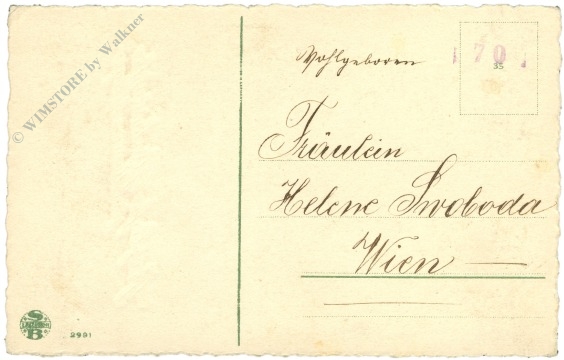 © WIMSTORE by Walkner
Wohlgeboren
70
35
Fräulein
Helene Swoboda
Wien —
S
B
2931